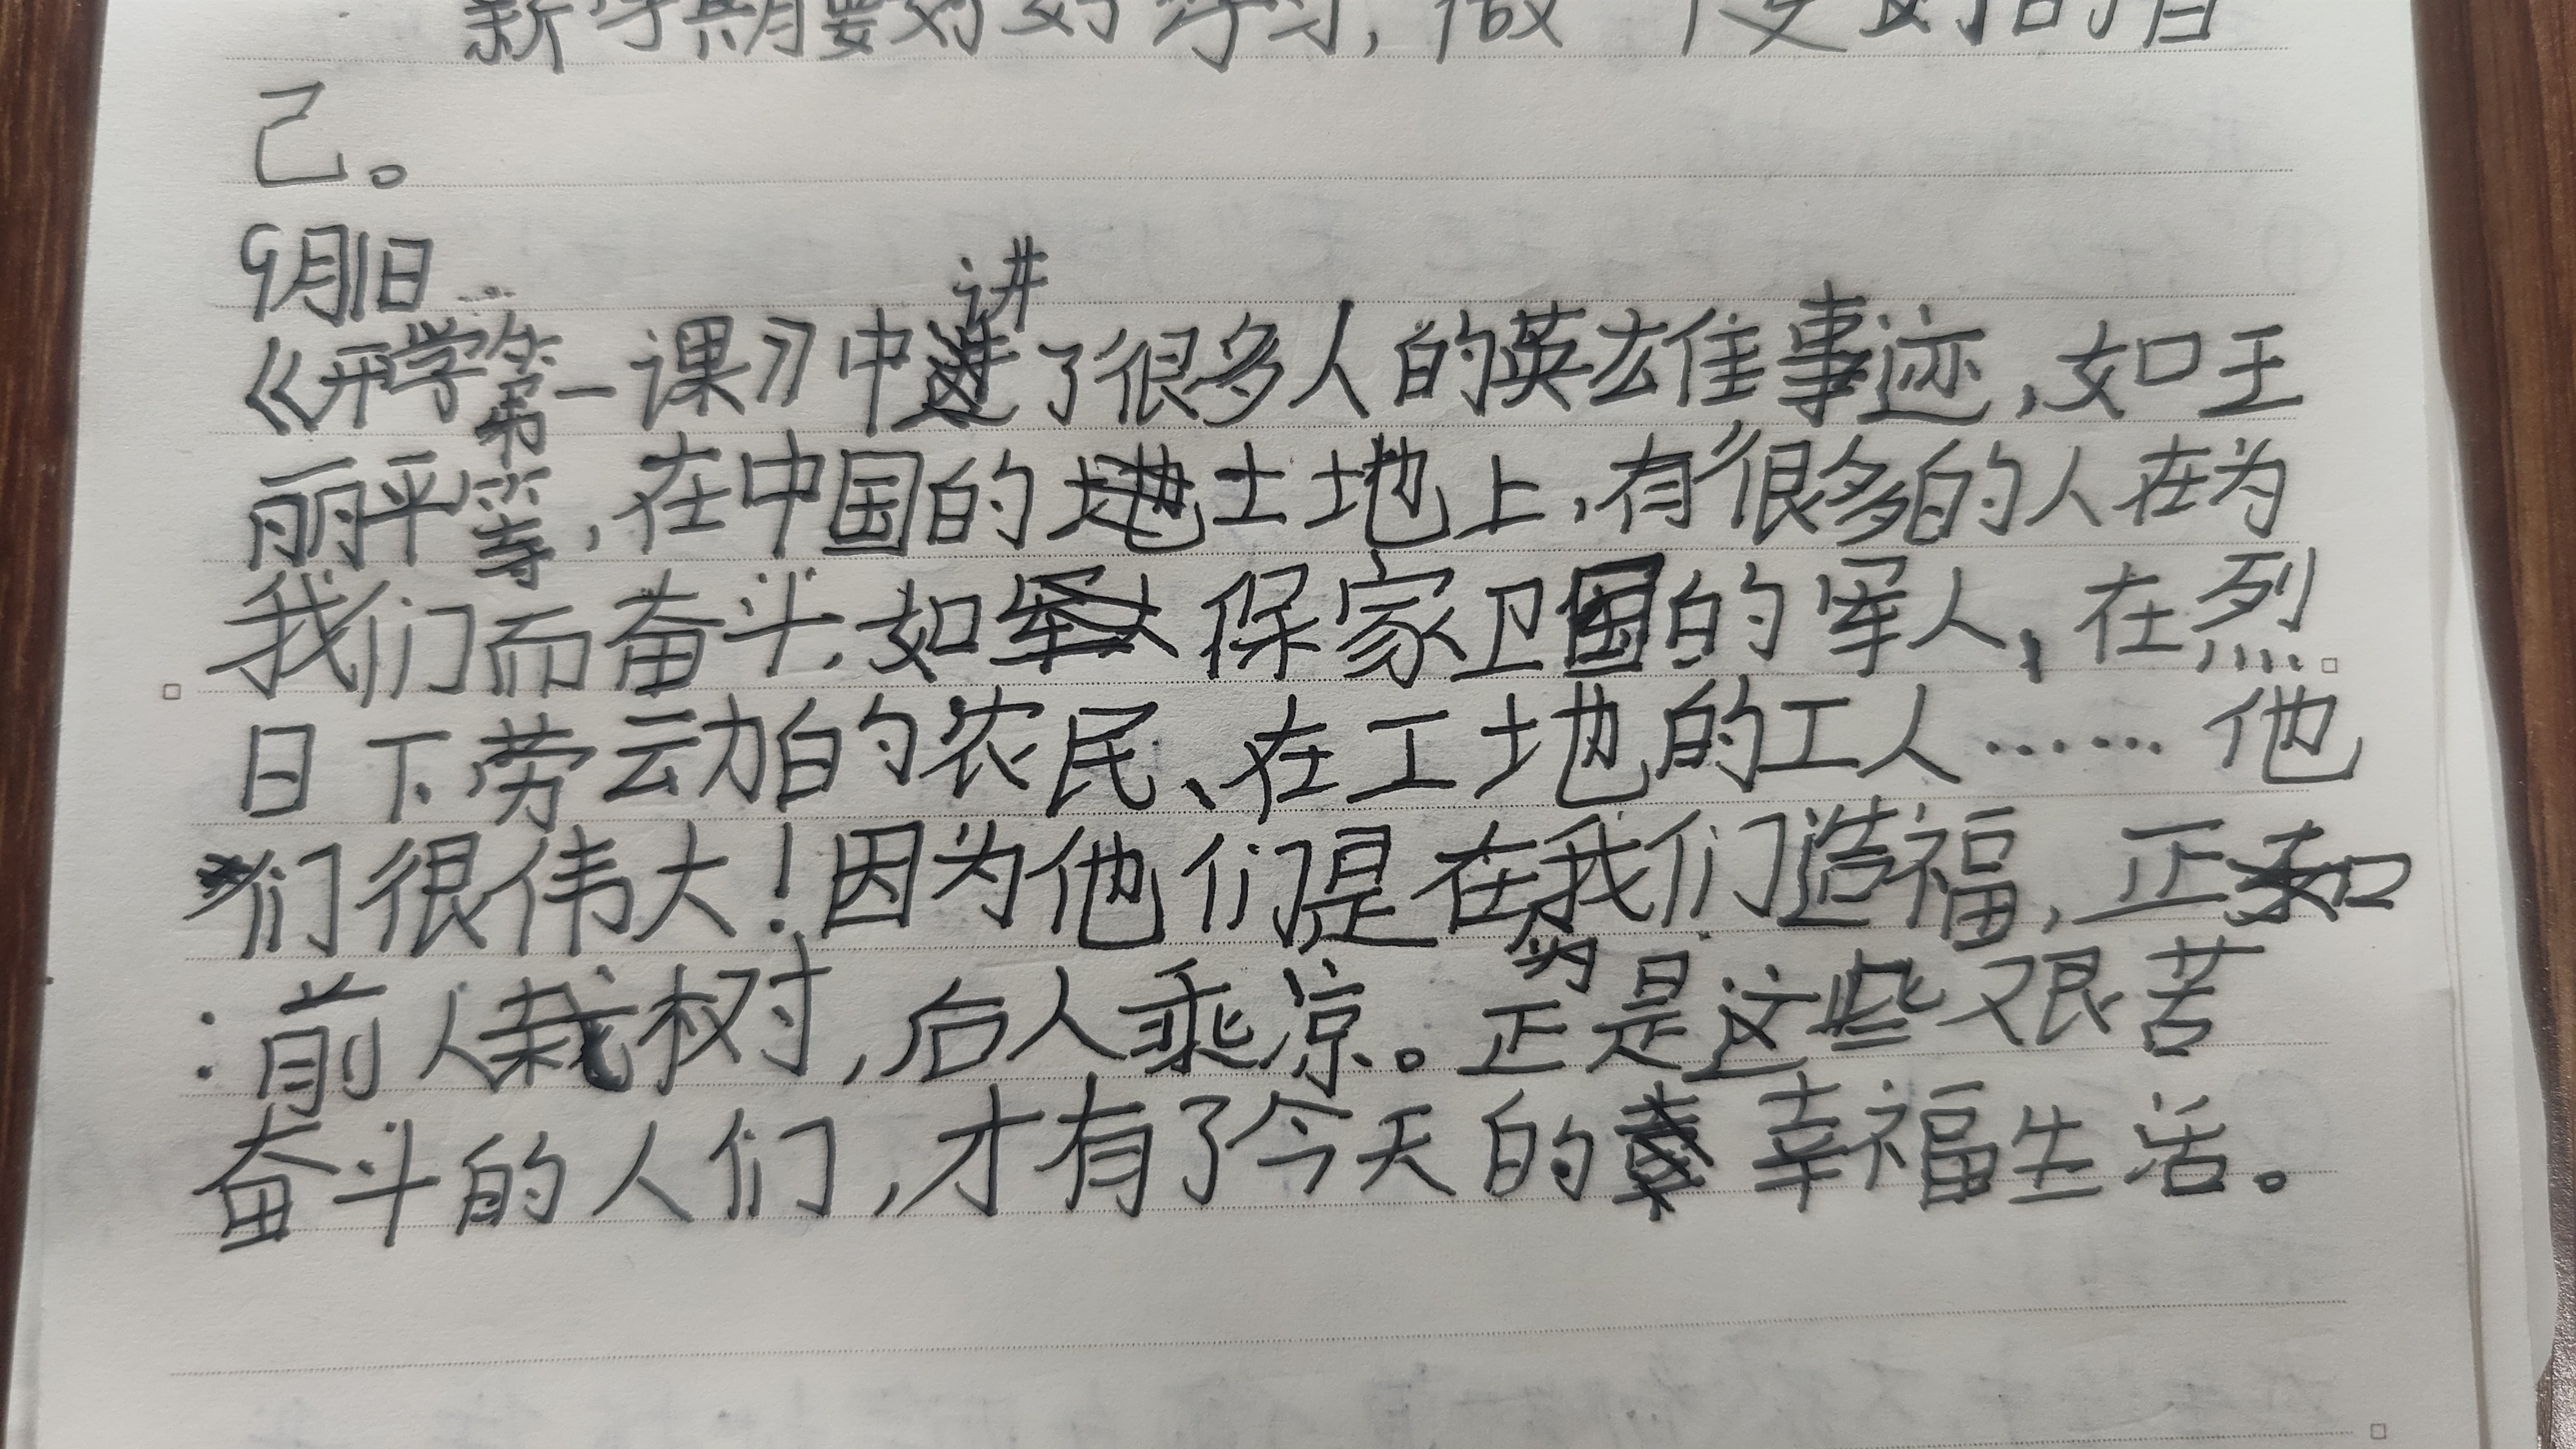 新学期要好好学习，做一个更好的自
己。
9月1日
《开学第一课》中讲了很多人的英雄事迹，如王
丽平等，在中国的土地上，有很多的人在为
我们而奋斗，如保家卫国的军人，在烈
日下劳动的农民、在工地的工人……他
们很伟大！因为他们是在为我们造福，正如
：前人栽树，后人乘凉。正是这些艰苦
奋斗的人们，才有了今天的幸福生活。